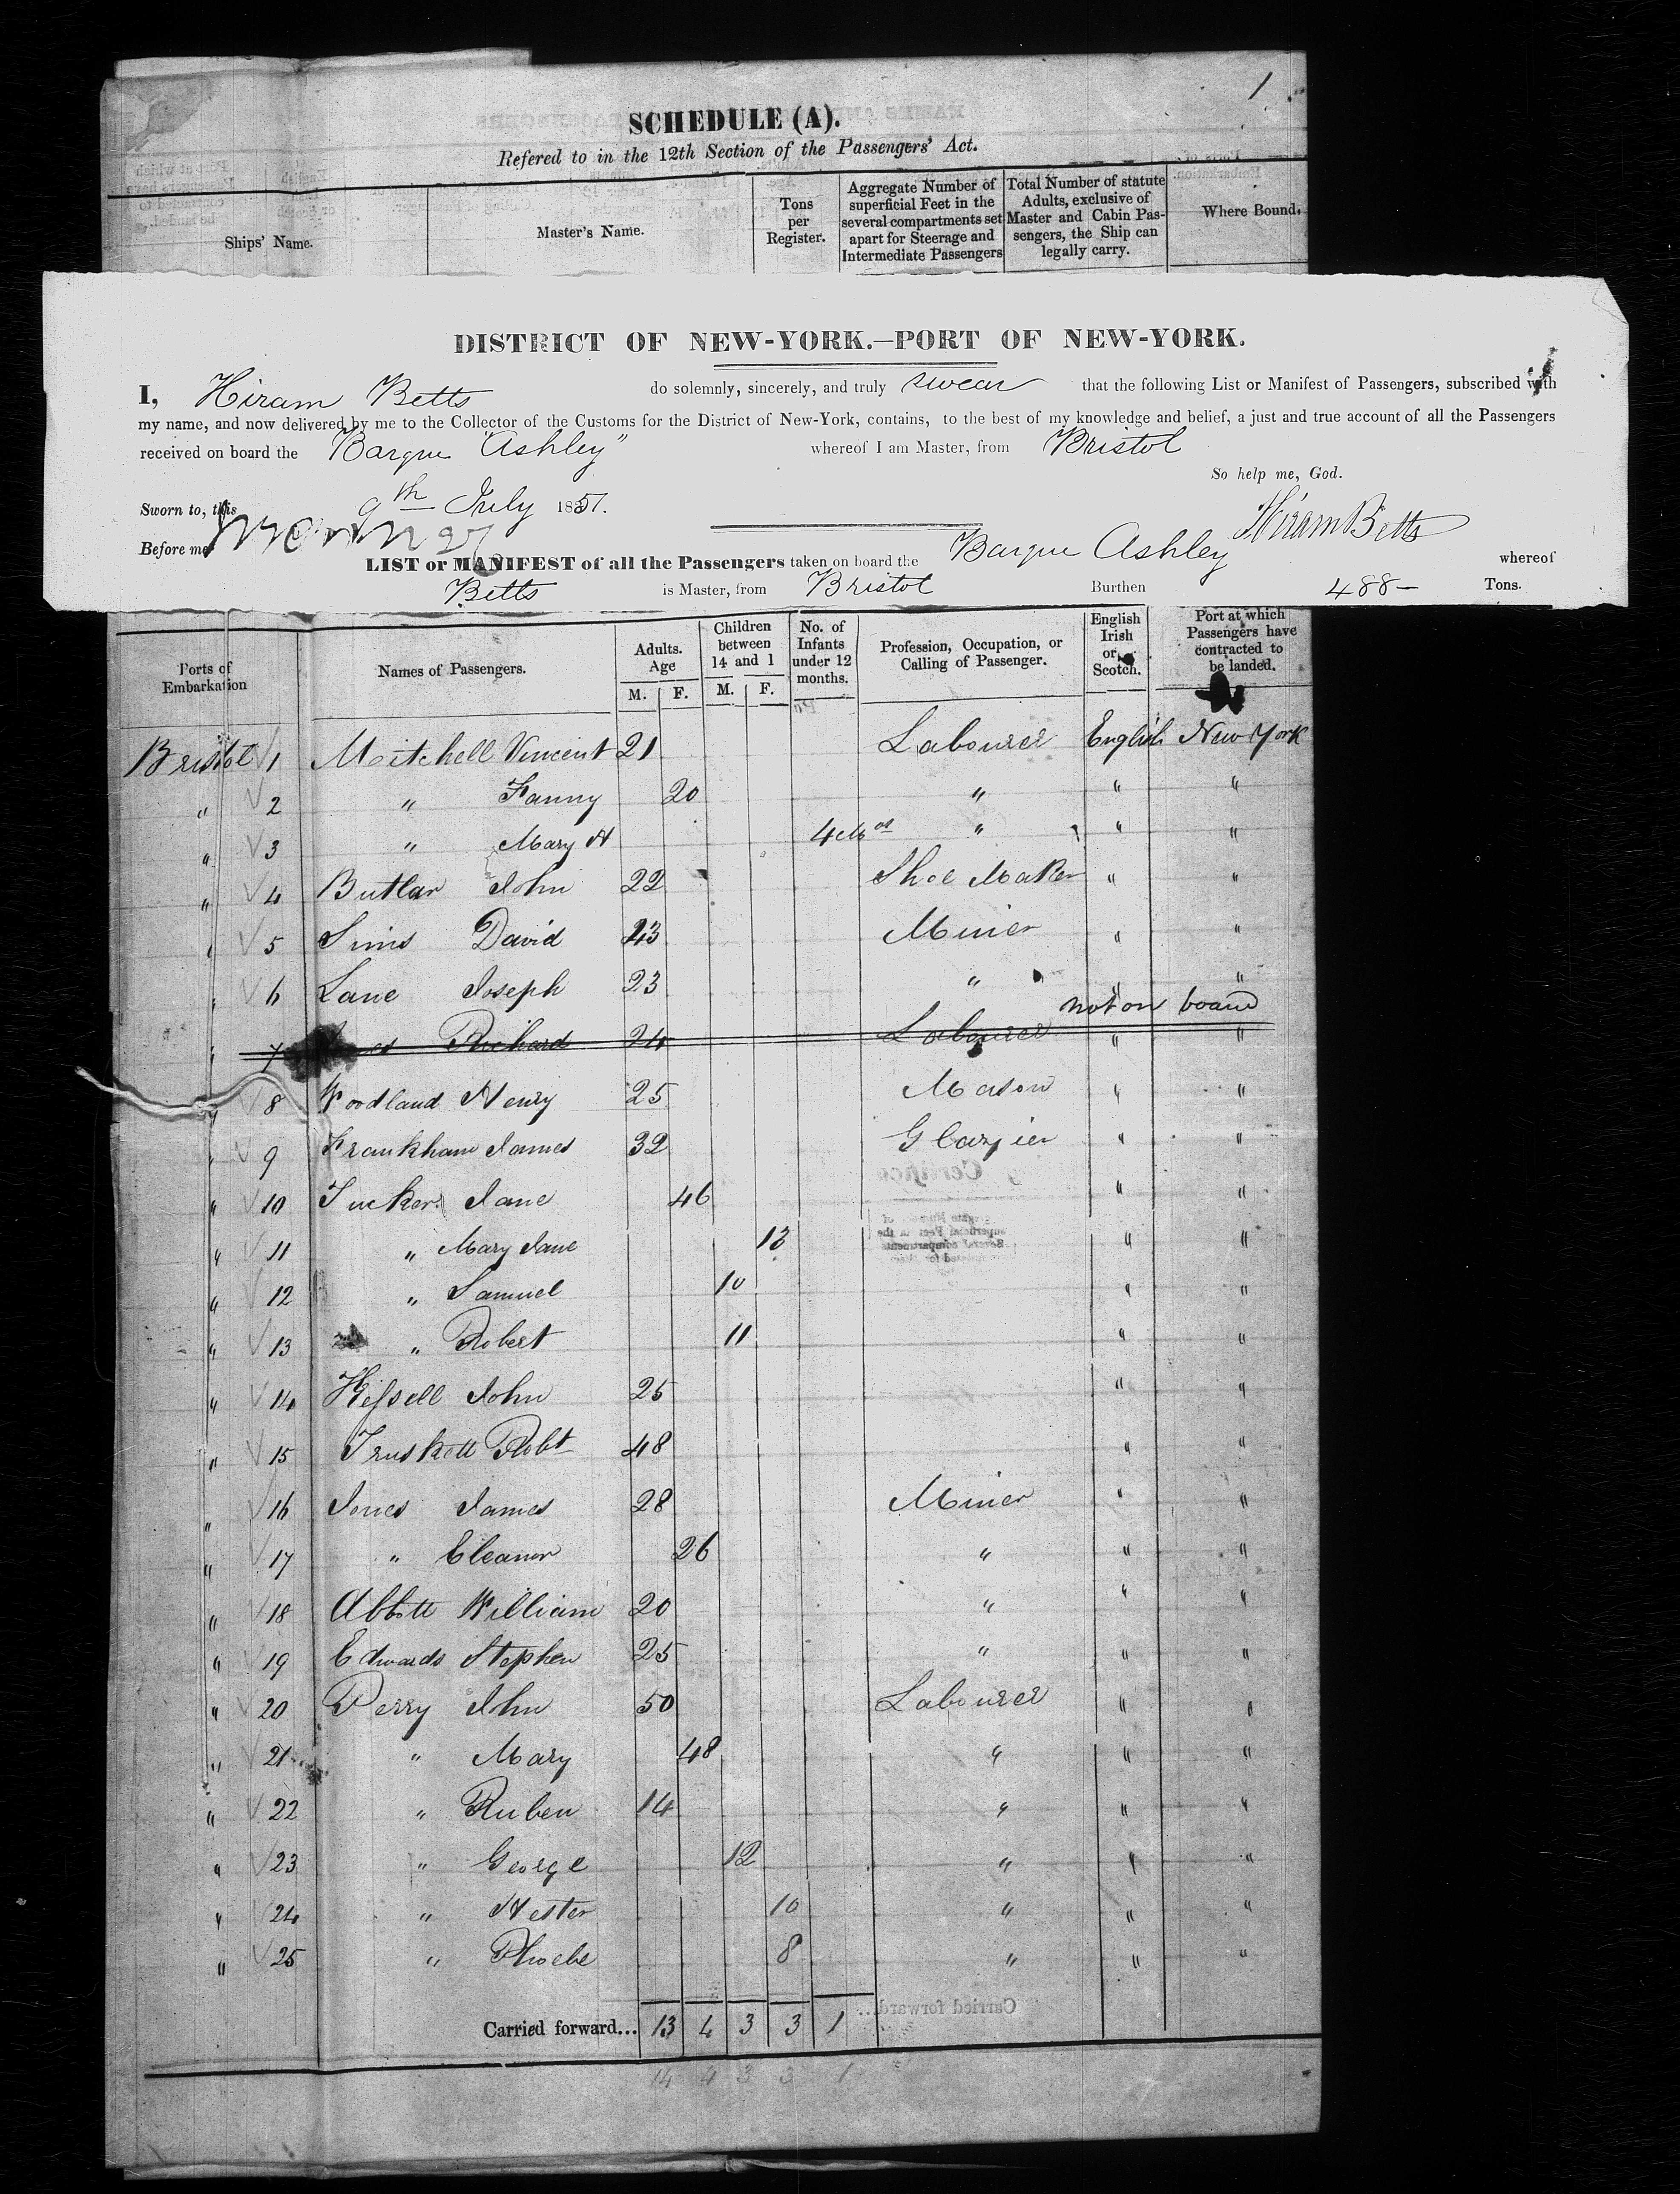 1
SCHEDULE (A).
Refered to in the 12th Section of the Passengers' Act.
Ships' Name. Master's Name. Tons per Register. Aggregate Number of superficial Feet in the several compartments set apart for Steerage and Intermediate Passengers Total Number of statute Adults, exclusive of Master and Cabin Passengers, the Ship can legally carry. Where Bound.
DISTRICT OF NEW-YORK.—PORT OF NEW-YORK.
I, Hiram Betts do solemnly, sincerely, and truly swear that the following List or Manifest of Passengers, subscribed with
my name, and now delivered by me to the Collector of the Customs for the District of New-York, contains, to the best of my knowledge and belief, a just and true account of all the Passengers
received on board the Barque "Ashley" whereof I am Master, from Bristol
So help me, God.
Sworn to, this 9th July 1851.
Hiram Betts
Before me
LIST or MANIFEST of all the Passengers taken on board the Barque Ashley whereof
Betts is Master, from Bristol Burthen 488 — Tons.
Ports of Embarkation Names of Passengers. Adults. Age M. F. Children between 14 and 1 M. F. No. of Infants under 12 months. Profession, Occupation, or Calling of Passenger. English Irish or Scotch. Port at which Passengers have contracted to be landed.
Bristol 1 Mitchell Vincent 21 Labourer English New York
" 2 " Fanny 20 " " "
" 3 " Mary A 4 Mos " " "
" 4 Butlar John 22 Shoe Maker " "
" 5 Sims David 23 Miner " "
" 6 Lane Joseph 23 " " "
not on board
" 7 Richard 24 Labourer " "
" 8 Woodland Henry 25 Mason " "
" 9 Frankham James 32 Glazier " "
" 10 Tucker Jane 46 " "
" 11 " Mary Jane 13 " "
" 12 " Samuel 10 " "
" 13 " Robert 11 " "
" 14 Hessell John 25 " "
" 15 Truskett Robt 48 " "
" 16 Jones James 28 Miner " "
" 17 " Eleanor 26 " " "
" 18 Abbott William 20 " " "
" 19 Edwards Stephen 25 " " "
" 20 Perry John 50 Labourer " "
" 21 " Mary 48 " " "
" 22 " Ruben 14 " " "
" 23 " George 12 " " "
" 24 " Hester 10 " " "
" 25 " Phoebe 8 " " "
Carried forward... 13 4 3 3 1
14 4 3 3 1